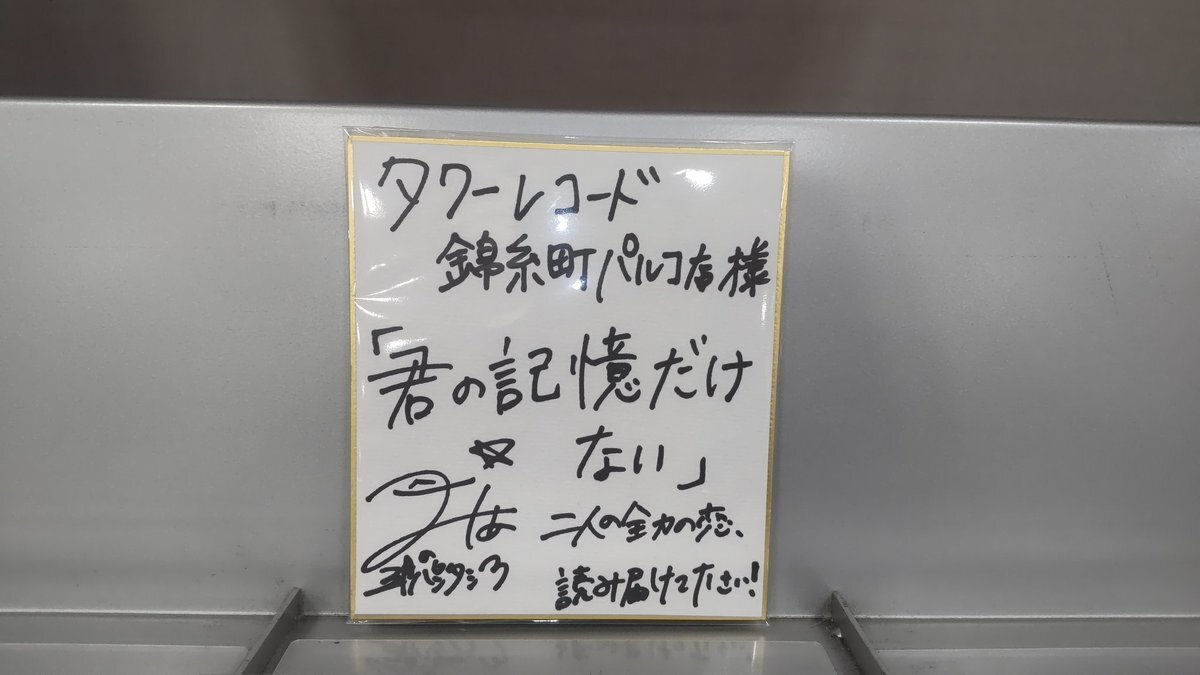 タワーレコード
錦糸町パルコ店様
「君の記憶だけ
ない」
二人の全力の恋、
読み届けて下さい!